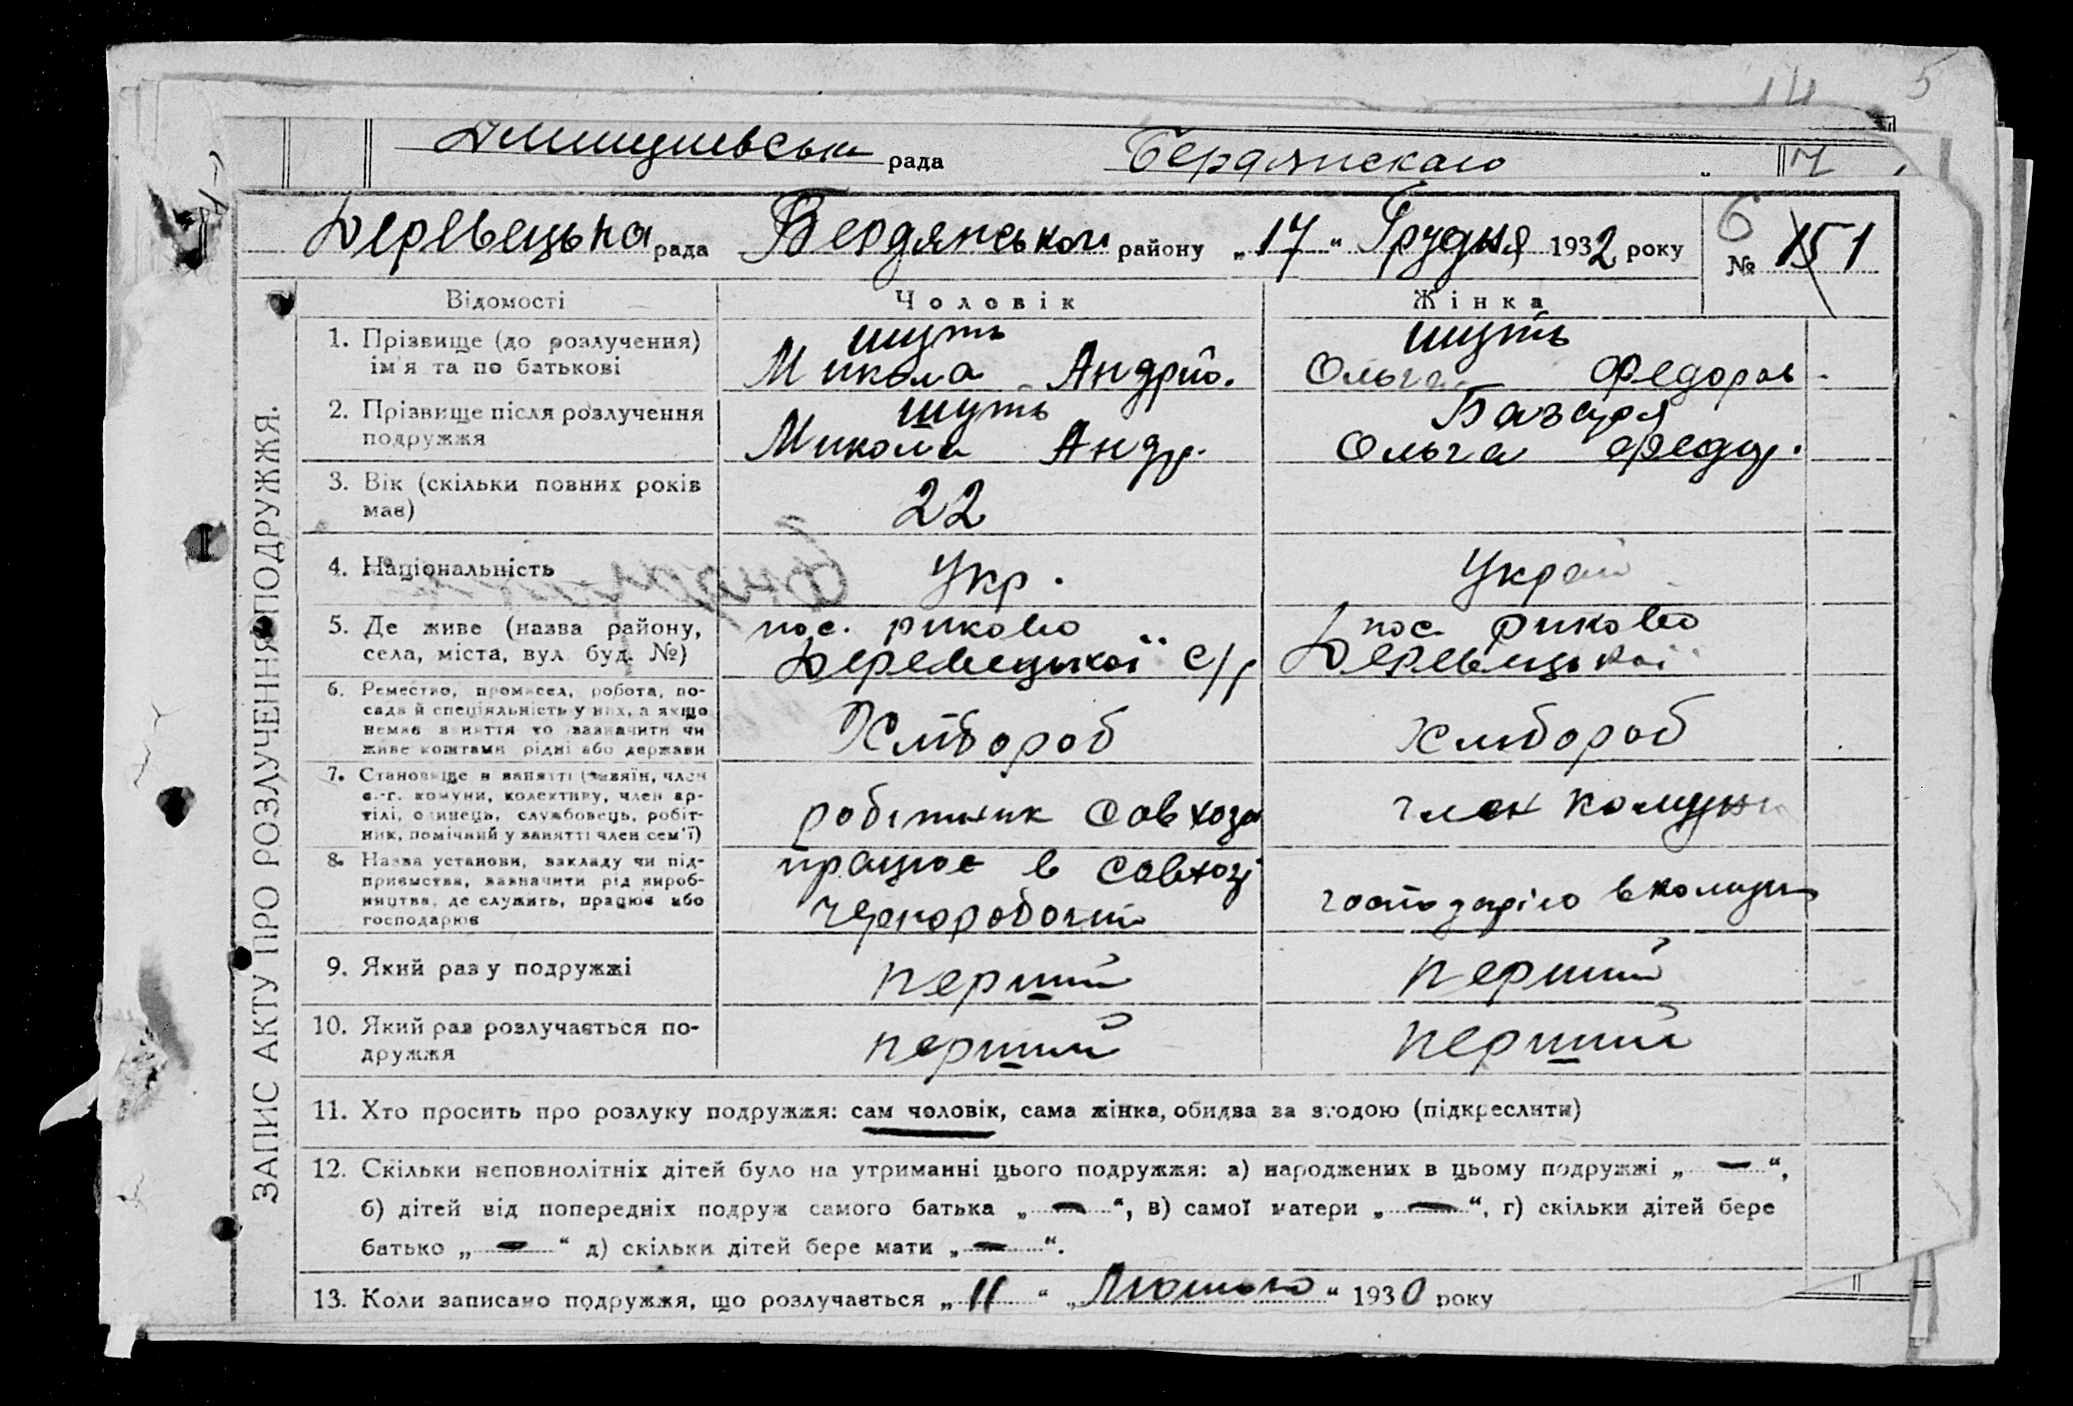 14 5
рада Бердянскаго 7
Деревецька рада Бердянського району „17“ Грудня 1932 року
6
№ 151
ЗАПИС АКТУ ПРО РОЗЛУЧЕННЯ ПОДРУЖЖЯ.
Відомості Чоловік Жінка
1. Прізвище (до розлучення) ім'я та по батькові
Шуть
Микола Андрій.
Шуть
Ольга Федоров
2. Прізвище після розлучення подружжя
Шуть
Микола Андр.
Базаря
Ольга Федор.
3. Вік (скільки повних років має)
22
4. Національність
Укр.
Украї
5. Де живе (назва району, села, міста, вул. буд. №)
пос. риково
Деревецької с/р
пос. риково
Деревецької
6. Ремество, промисел, робота, посада й спеціяльність у них, а якщо немає заняття то зазначити чи живе коштами рідні або держави
Хлібороб
Хлібороб
7. Становище в занятті (хазяїн, член с.-г. комуни, колективу, член артілі, одинець, службовець, робітник, помічний у занятті член сем'ї)
робітник Совхоза
член комуни
8. Назва установи, закладу чи підприємства, зазначити рід виробництва, де служить, працює або господарює
працює в Совхозі
Чорноробочий
господарію в комуни
9. Який раз у подружжі
перший
перший
10. Який раз розлучається подружжя
перший
перший
11. Хто просить про розлуку подружжя: сам чоловік, сама жінка, обидва за згодою (підкреслити)
12. Скільки неповнолітніх дітей було на утриманні цього подружжя: а) народжених в цьому подружжі „ — “,
б) дітей від попередніх подруж самого батька „ — “, в) самої матери „ — “, г) скільки дітей бере
батько „ — “ д) скільки дітей бере мати „ — “.
13. Коли записано подружжя, що розлучається „ 11 “ „Лютого“ 1930 року